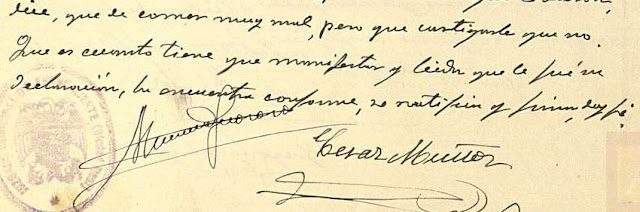 dice, que de comer muy mal, pero que castigarle que no.
Que es cuanto tiene que manifestar y leida que le fué su
declaración, la encuentra conforme, se ratifica y firma, doy fé.
Cesar Muñoz